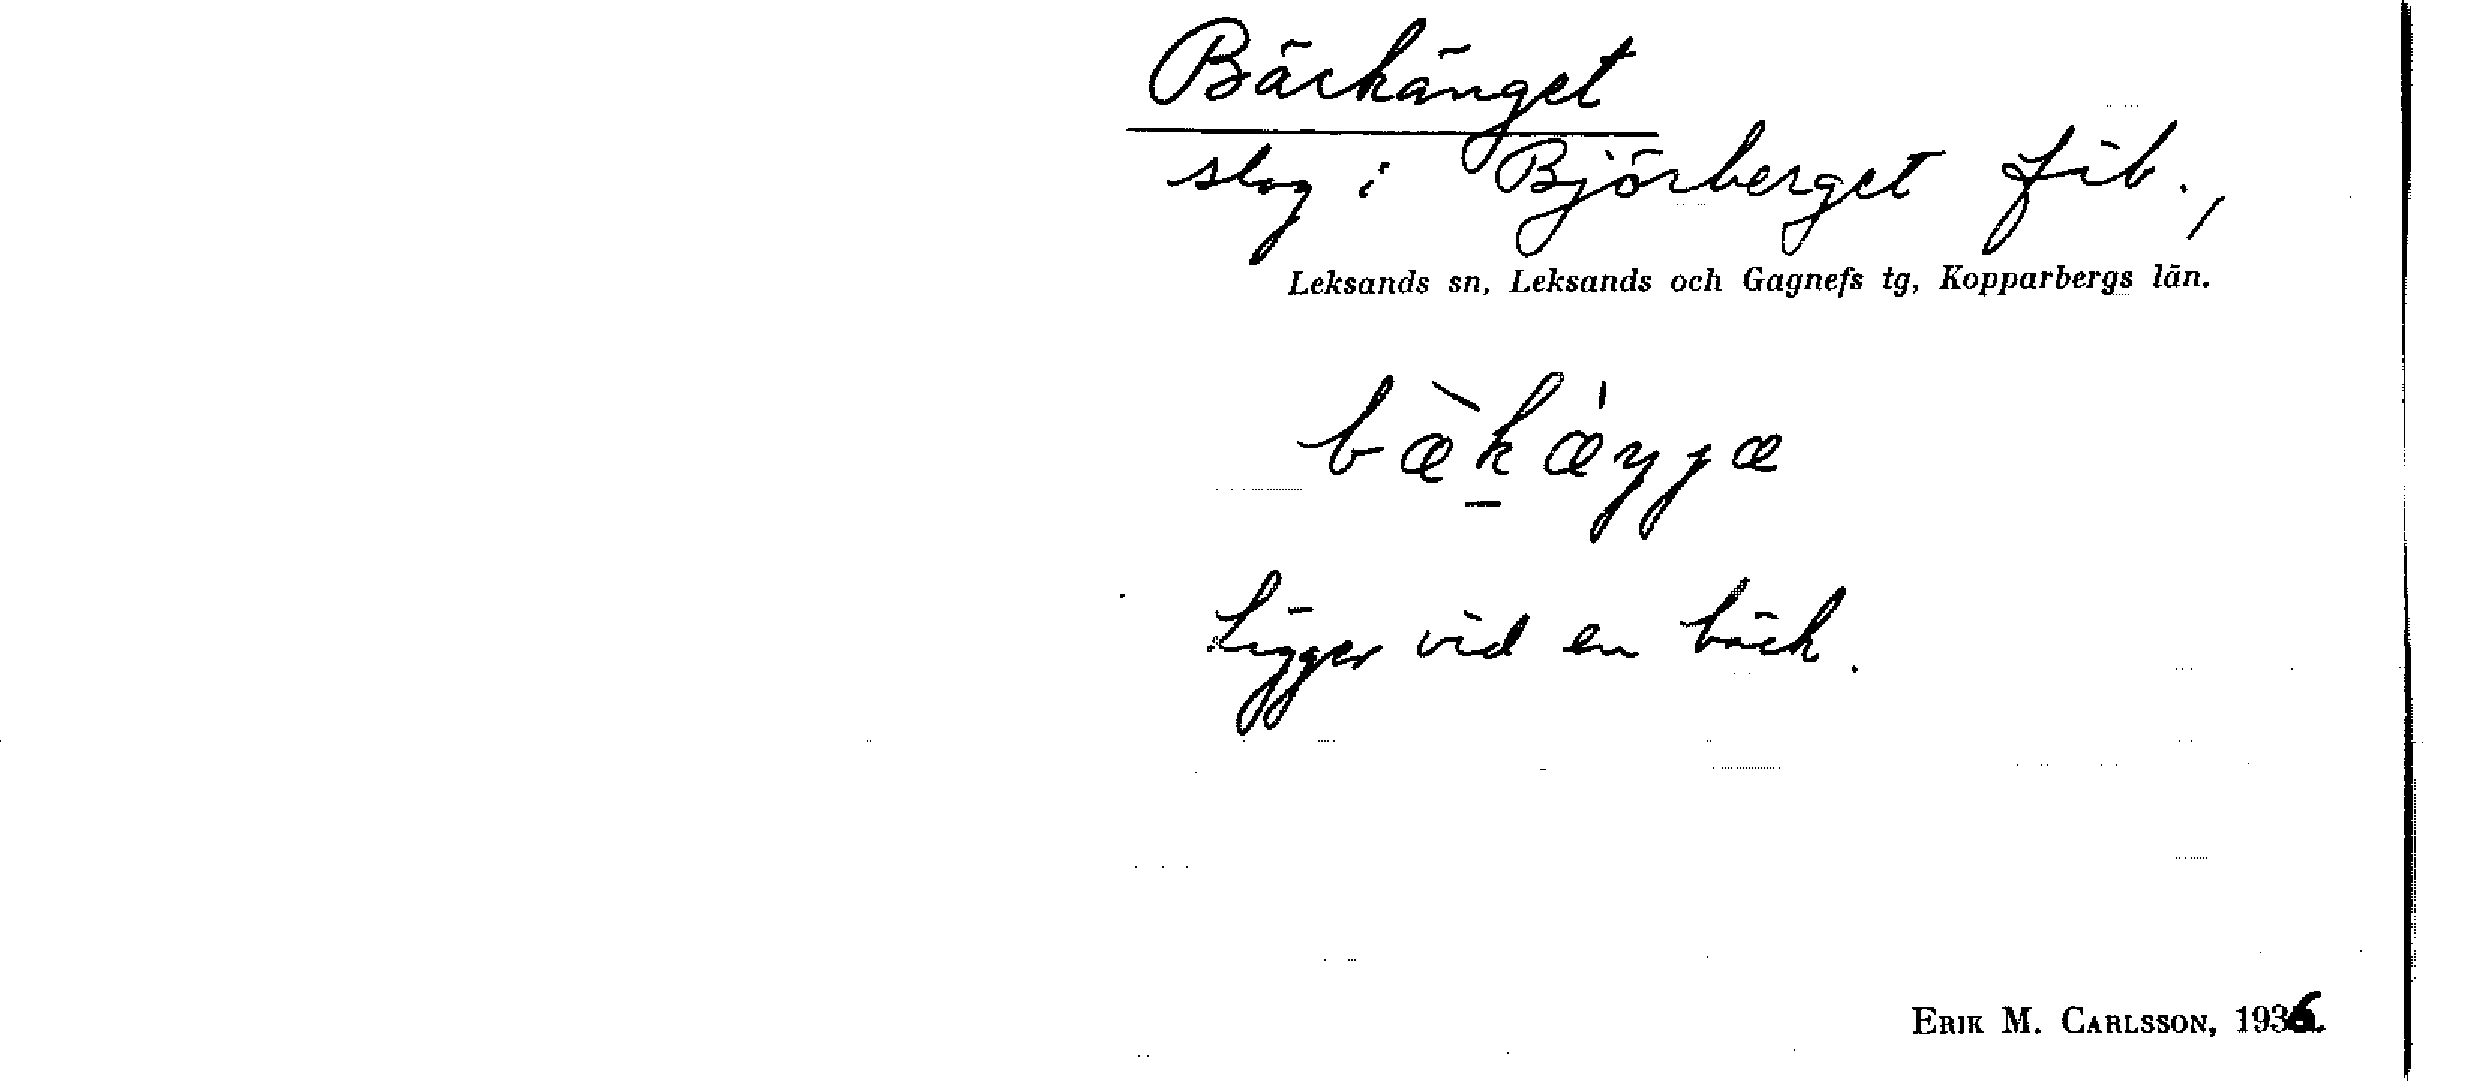 Bäckänget
slog i Björberget fäb.,
Leksands sn, Leksands och Gagnefs tg, Kopparbergs län.
bæ̀k̠æ̍ŋgæ
Ligger vid en bäck.
ERIK M. CARLSSON, 1936.